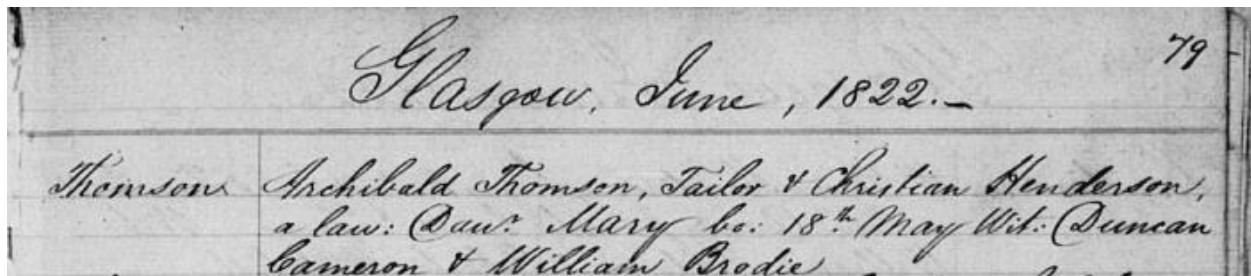 79
Glasgow, June, 1822.—
Thomson Archibald Thomson, Tailor & Christian Henderson,
a law: Dawr. Mary bo: 18th May Wit: Duncan
Cameron & William Brodie